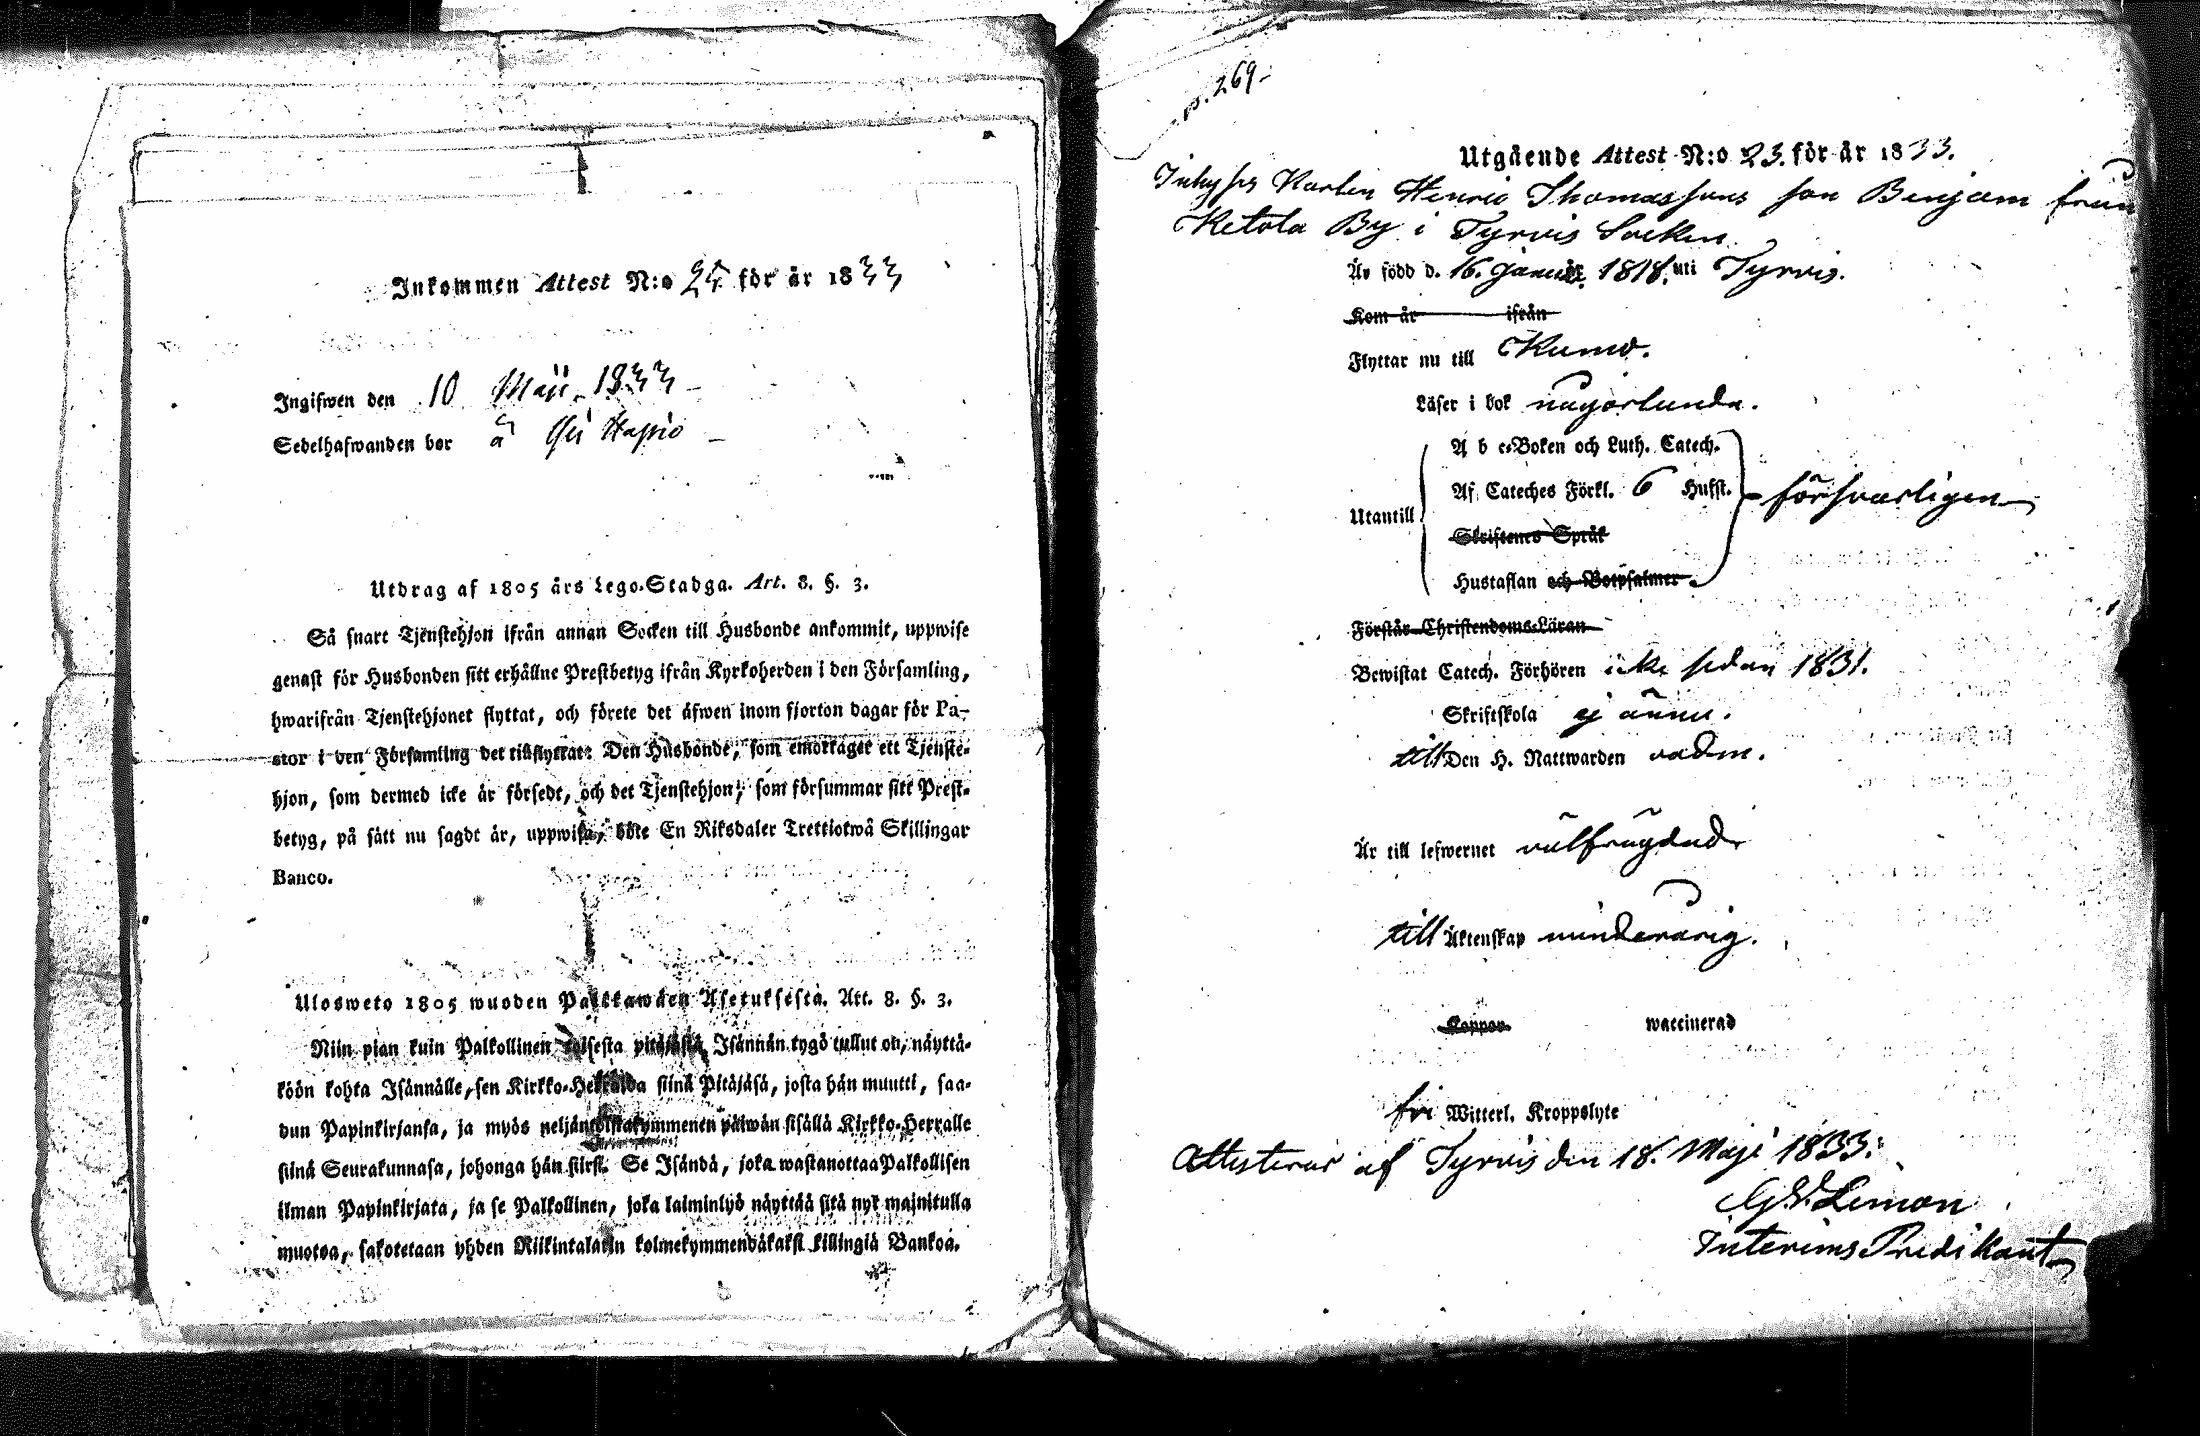 Inkommen Attest N:o 25 för år 1833
Ingifwen den 10 Maji 1833 –
Sedelhafwanden bor å –
Utdrag af 1805 års Lego-Stadga. Art. 8. §. 3.
Så snart Tjenstehjon ifrån annan Socken till Husbonde ankommit, uppwise
genast för Husbonden sitt erhållne Prestbetyg ifrån Kyrkoherden i den Församling,
hwarifrån Tjenstehjonet flyttat, och förete det äfwen inom fjorton dagar för Pa-
stor i den Församling det tillflyttat: Den Husbonde, som emottager ett Tjenste-
hjon, som dermed icke är försedt, och det Tjenstehjon, som försummar sitt Prest-
betyg, på sätt nu sagdt är, uppwisa, böte En Riksdaler Trettiotwå Skillingar
Banco.
Ulosweto 1805 wuoden Palkkawäen Asetuksesta. Att. 8. §. 3.
Niin pian kuin Palkollinen toisesta pitäjästä Isännän tygö tullut on, näyttä-
köön kohta Isännälle, sen Kirkko-Herralda siinä Pitäjäsä, josta hän muutti, saa-
dun Papinkirjansa, ja myös neljäntoistakymmenen päiwän sisällä Kirkko-Herralle
siinä Seurakunnasa, johonga hän siirsi. Se Isändä, joka wastanottaa Palkollisen
ilman Papinkirjata, ja se Palkollinen, joka laiminlyö näyttää sitä nyt mainitulla
muotoa, sakotetaan yhden Riikintalarin kolmekymmendäkaksi killingiä Bankoa.
p. 269–
Utgående Attest N:o 23. för år 1833.
Inhyses Karlen Henric Thomassons son Benjam från
Ketola By i Tyrvis Socken
Är född d. 16. Januar. 1818. uti Tyrvis.
Kom år ifrån
Flyttar nu till Kumo.
Läser i bok någorlunda.
A b c-Boken och Luth. Catech.
Af Cateches Förkl. 6 Hufst. försvarligen
Utantill
Skriftenes Språk
Hustaflan och Botpsalmer
Förstår Christendoms-Läran
Bewistat Catech. Förhören icke sedan 1831.
Skriftskola ej ännu.
till Den H. Nattwarden
Är till lefwernet välfrägdad
till Äktenskap minderårig.
Koppor waccinerad
fri Witterl. Kroppslyte
Attesterar af Tyrvis den 18. Maji 1833:
G. W. Limon
Interims Predikant